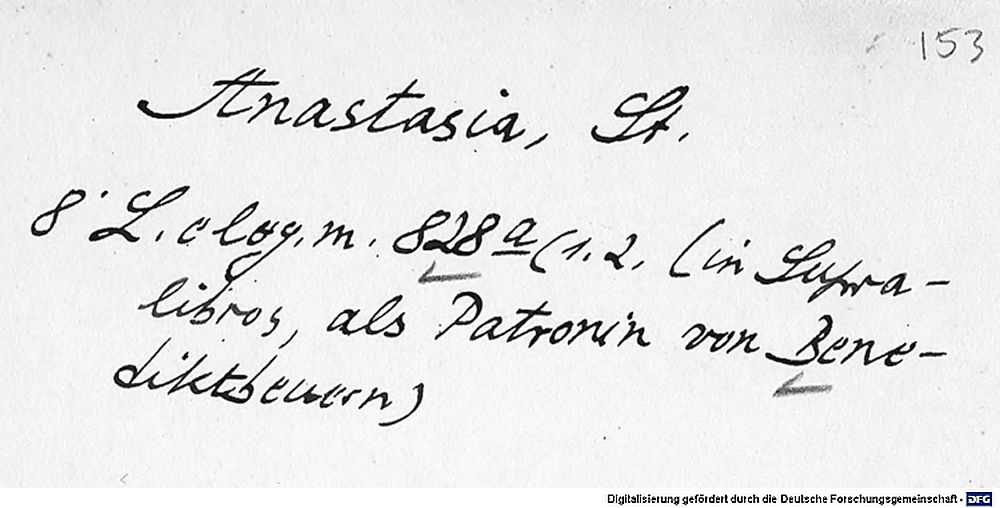 153
Anastasia, St.
8° L. eleg. m. 828 a (1. 2. (in Supra-
libros, als Patronin von Bene-
diktbeuern)
Digitalisierung gefördert durch die Deutsche Forschungsgemeinschaft - DFG